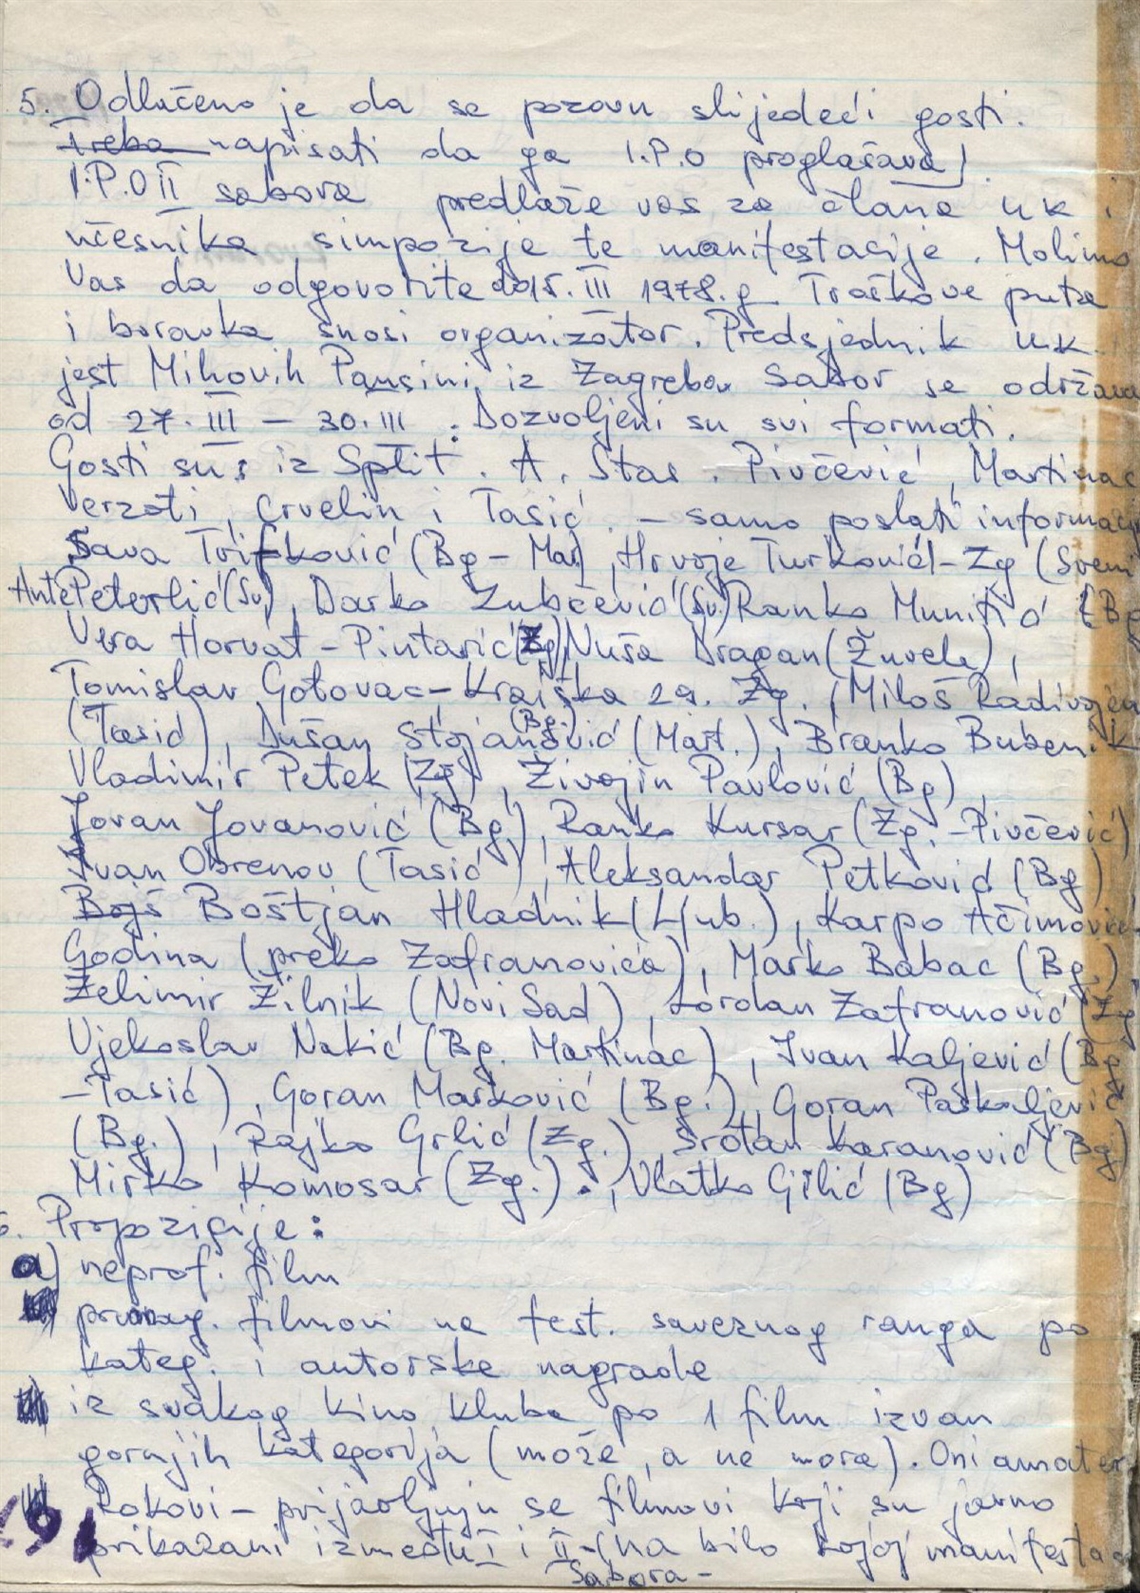 5. Odlučeno je da se pozovu slijedeći gosti.
Treba napisati da ga I.P.O proglašava!
I.P.O II sabora predlaže vas za člana UK i
učesnika simpozije te manifestacije. Molimo
Vas da odgovorite do 15. III 1978.g Troškove puta
i boravka snosi organizator. Predsjednik UK.
jest Mihovih Pansini iz Zagreba Sabor se održava
od 27. III – 30. III . Dozvoljeni su svi formati.
Gosti su: iz Split. A. Stas. Pivčević, Martinac
Verzoti, Crvelin i Tasić. – samo poslati informac
Sava Trifković (Bg – Mar), Hrvoje Turković – Zg (Sveni
Ante Peterlić (Sv), Darko Zubčević (Sv.) Ranko Munitić (Bg
Vera Horvat – Pintarić (Zg), Nuša Dragan (Žuvela),
Tomislav Gotovac – Krajiška 29. Zg., Miloš Radivojev
(Tasić), Dušan Stojanović (Bg.) (Mart.), Branko Bubenik
Vladimir Petek (Zg), Živojin Pavlović (Bg),
Jovan Jovanović (Bg), Ranko Kursar (Zg. – Pivčević)
Ivan Obrenov (Tasić), Aleksandar Petković (Bg)
Bojš Boštjan Hladnik (Ljub.), Karpo Ačimović
Godina (preko Zafranovića), Marko Babac (Bg.)
Želimir Žilnik (Novi Sad), Lordan Zafranović (Zg
Vjekoslav Nakić (Bg. Martinac), Ivan Kaljević (Bg
– Tasić), Goran Marković (Bg.), Goran Paskaljević
(Bg.), Rajko Grlić (Zg.), Srđan Karanović (Bg)
Mirko Komosar (Zg.)., Vlatko Gilić (Bg)
6. Propozicije:
a) neprof. film
filmovi na fest. saveznog ranga po
kateg. i autorske nagrade
iz svakog kino kluba po 1 film izvan
gornjih kategorija (može, a ne mora). Oni amater
Rokovi – prijavljuju se filmovi koji su javno
prikazani između I i II – (na bilo kojoj manifesta
Sabora –